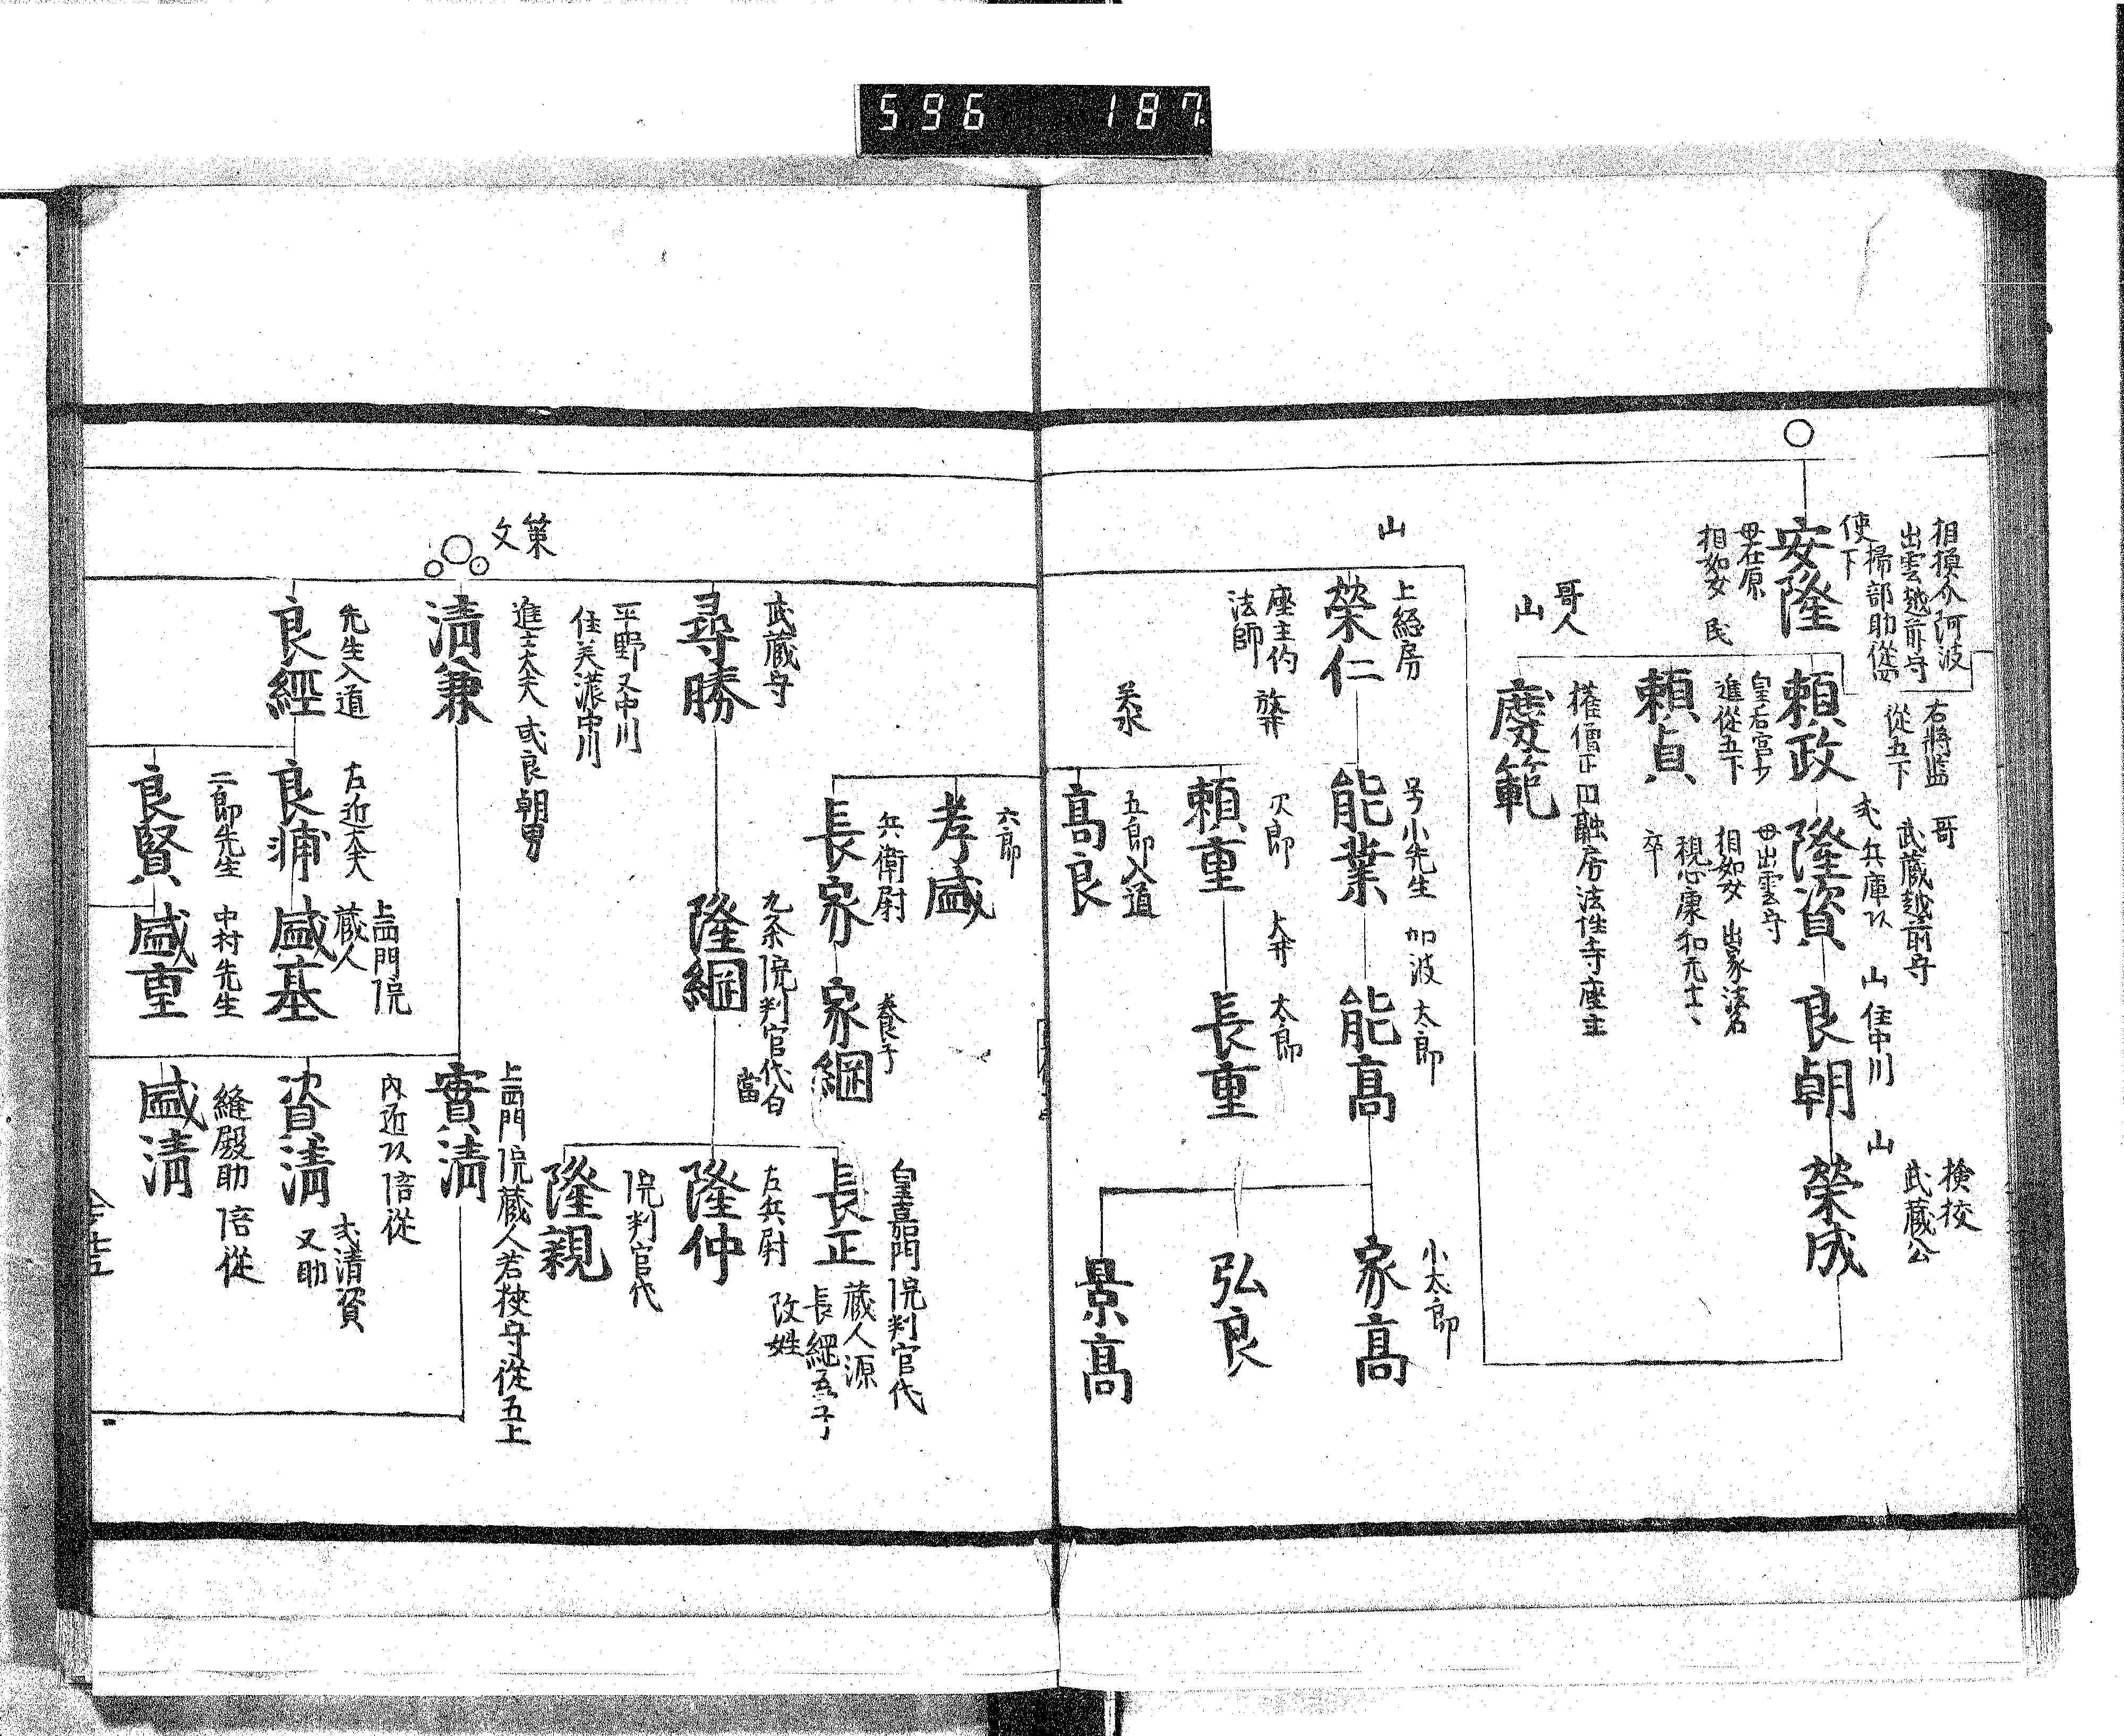 596 187
相摸介阿波
出雲越前守
掃部助從四
使下
安隆
母在原
相如女 民
右將監
從五下
頼政
皇后宮少
進從五下
頼貞
哥人
山
權僧正 法性寺座主
慶範
哥
武蔵越前守
兵庫
隆資
母出雲守
相如女 出家法名
視心康和元士、
卒
山 住中川
良朝
山
検校
武蔵公
榮成
山
上総房
榮仁
座主的
法師
号小先生 加波
能業
太郎
能髙
小太郎
家髙
弘良
景髙
次郎 大井
頼重
太郎
長重
五郎入道
髙良
六郎
孝盛
兵衛尉
長家
養子
家綱
武蔵守
尋勝
平野又中川
住美濃中川
九条院判官代白
當
隆綱
皇嘉門院判官代
蔵人源
長綱
改姓
長正
左兵尉
隆仲
院判官代
隆親
策
文
進士大夫 或良朝男
清兼
上西門院蔵人若狭守從五上
實清
内近 陪從
資清
清資
又助
縫殿助 陪從
盛清
先生入道
良經
左近大夫
良浦
上西門院
蔵人
盛基
二郎先生
良賢
中村先生
盛重